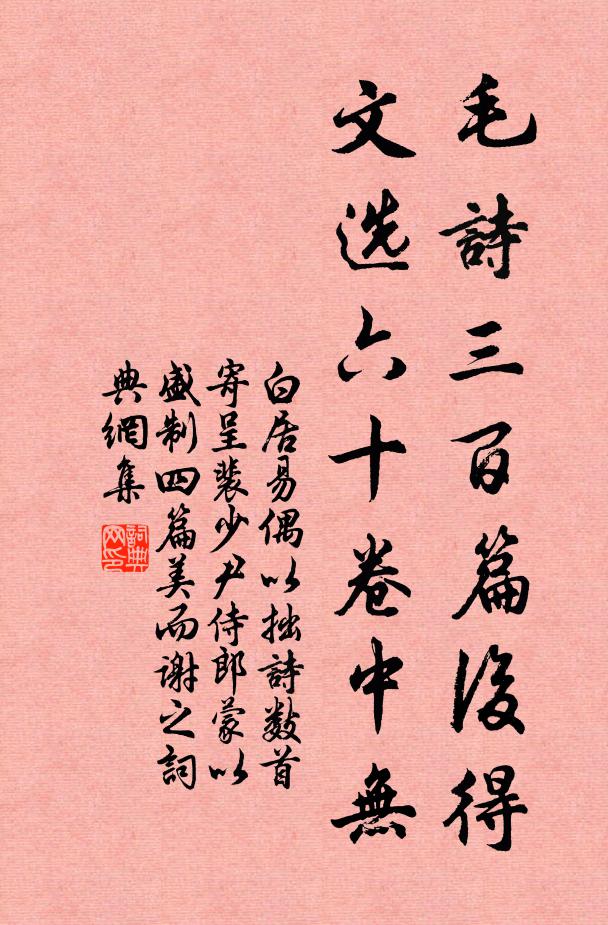 毛詩三百篇後得
文选六十卷中無
白居易偶以拙詩数首
寄呈裴少尹侍郎蒙以
盛制四篇美而谢之词
典網集
詞典网印